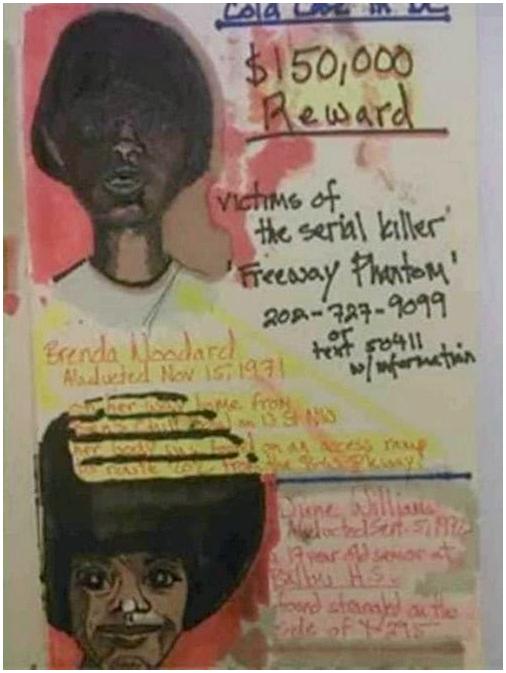 Cold Case in DC
$150,000
Reward
victims of
the serial killer
'Freeway Phantom'
202-727-9099
or
text 50411
w/information
Brenda Woodard
Abducted Nov 15, 1971
on her way home from
on
her body found on an access ramp
route 202 from the
Diane Williams
Abducted Sept. 5, 197
a 17 year old senior at
H.S.
found strangled on the
side of I-295